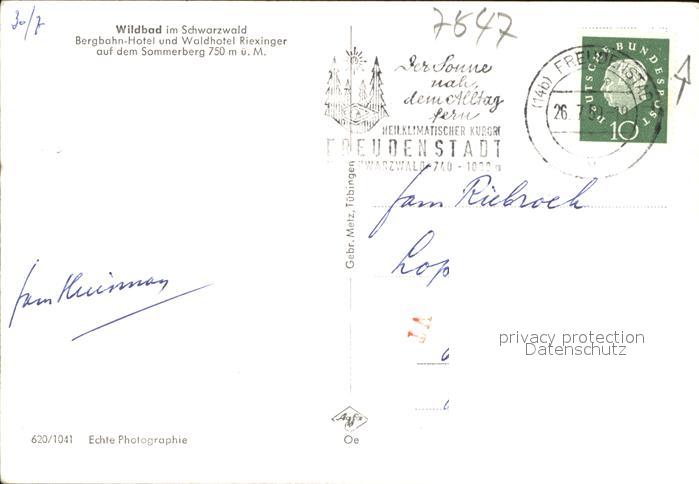 30/7
7847
Wildbad im Schwarzwald
Bergbahn-Hotel und Waldhotel Riexinger
auf dem Sommerberg 750 m ü. M.
Der Sonne
nah,
dem Alltag
fern
HEILKLIMATISCHER KURORT
FREUDENSTADT
SCHWARZWALD 740 - 1000 m
(14b) FREUDENSTADT
26. 7. 
DEUTSCHE BUNDESPOST
10
Fam Riebrock
Lop
Gebr. Metz, Tübingen
Fam Huisman
privacy protection
Datenschutz
Agfa
620/1041 Echte Photographie
Oe